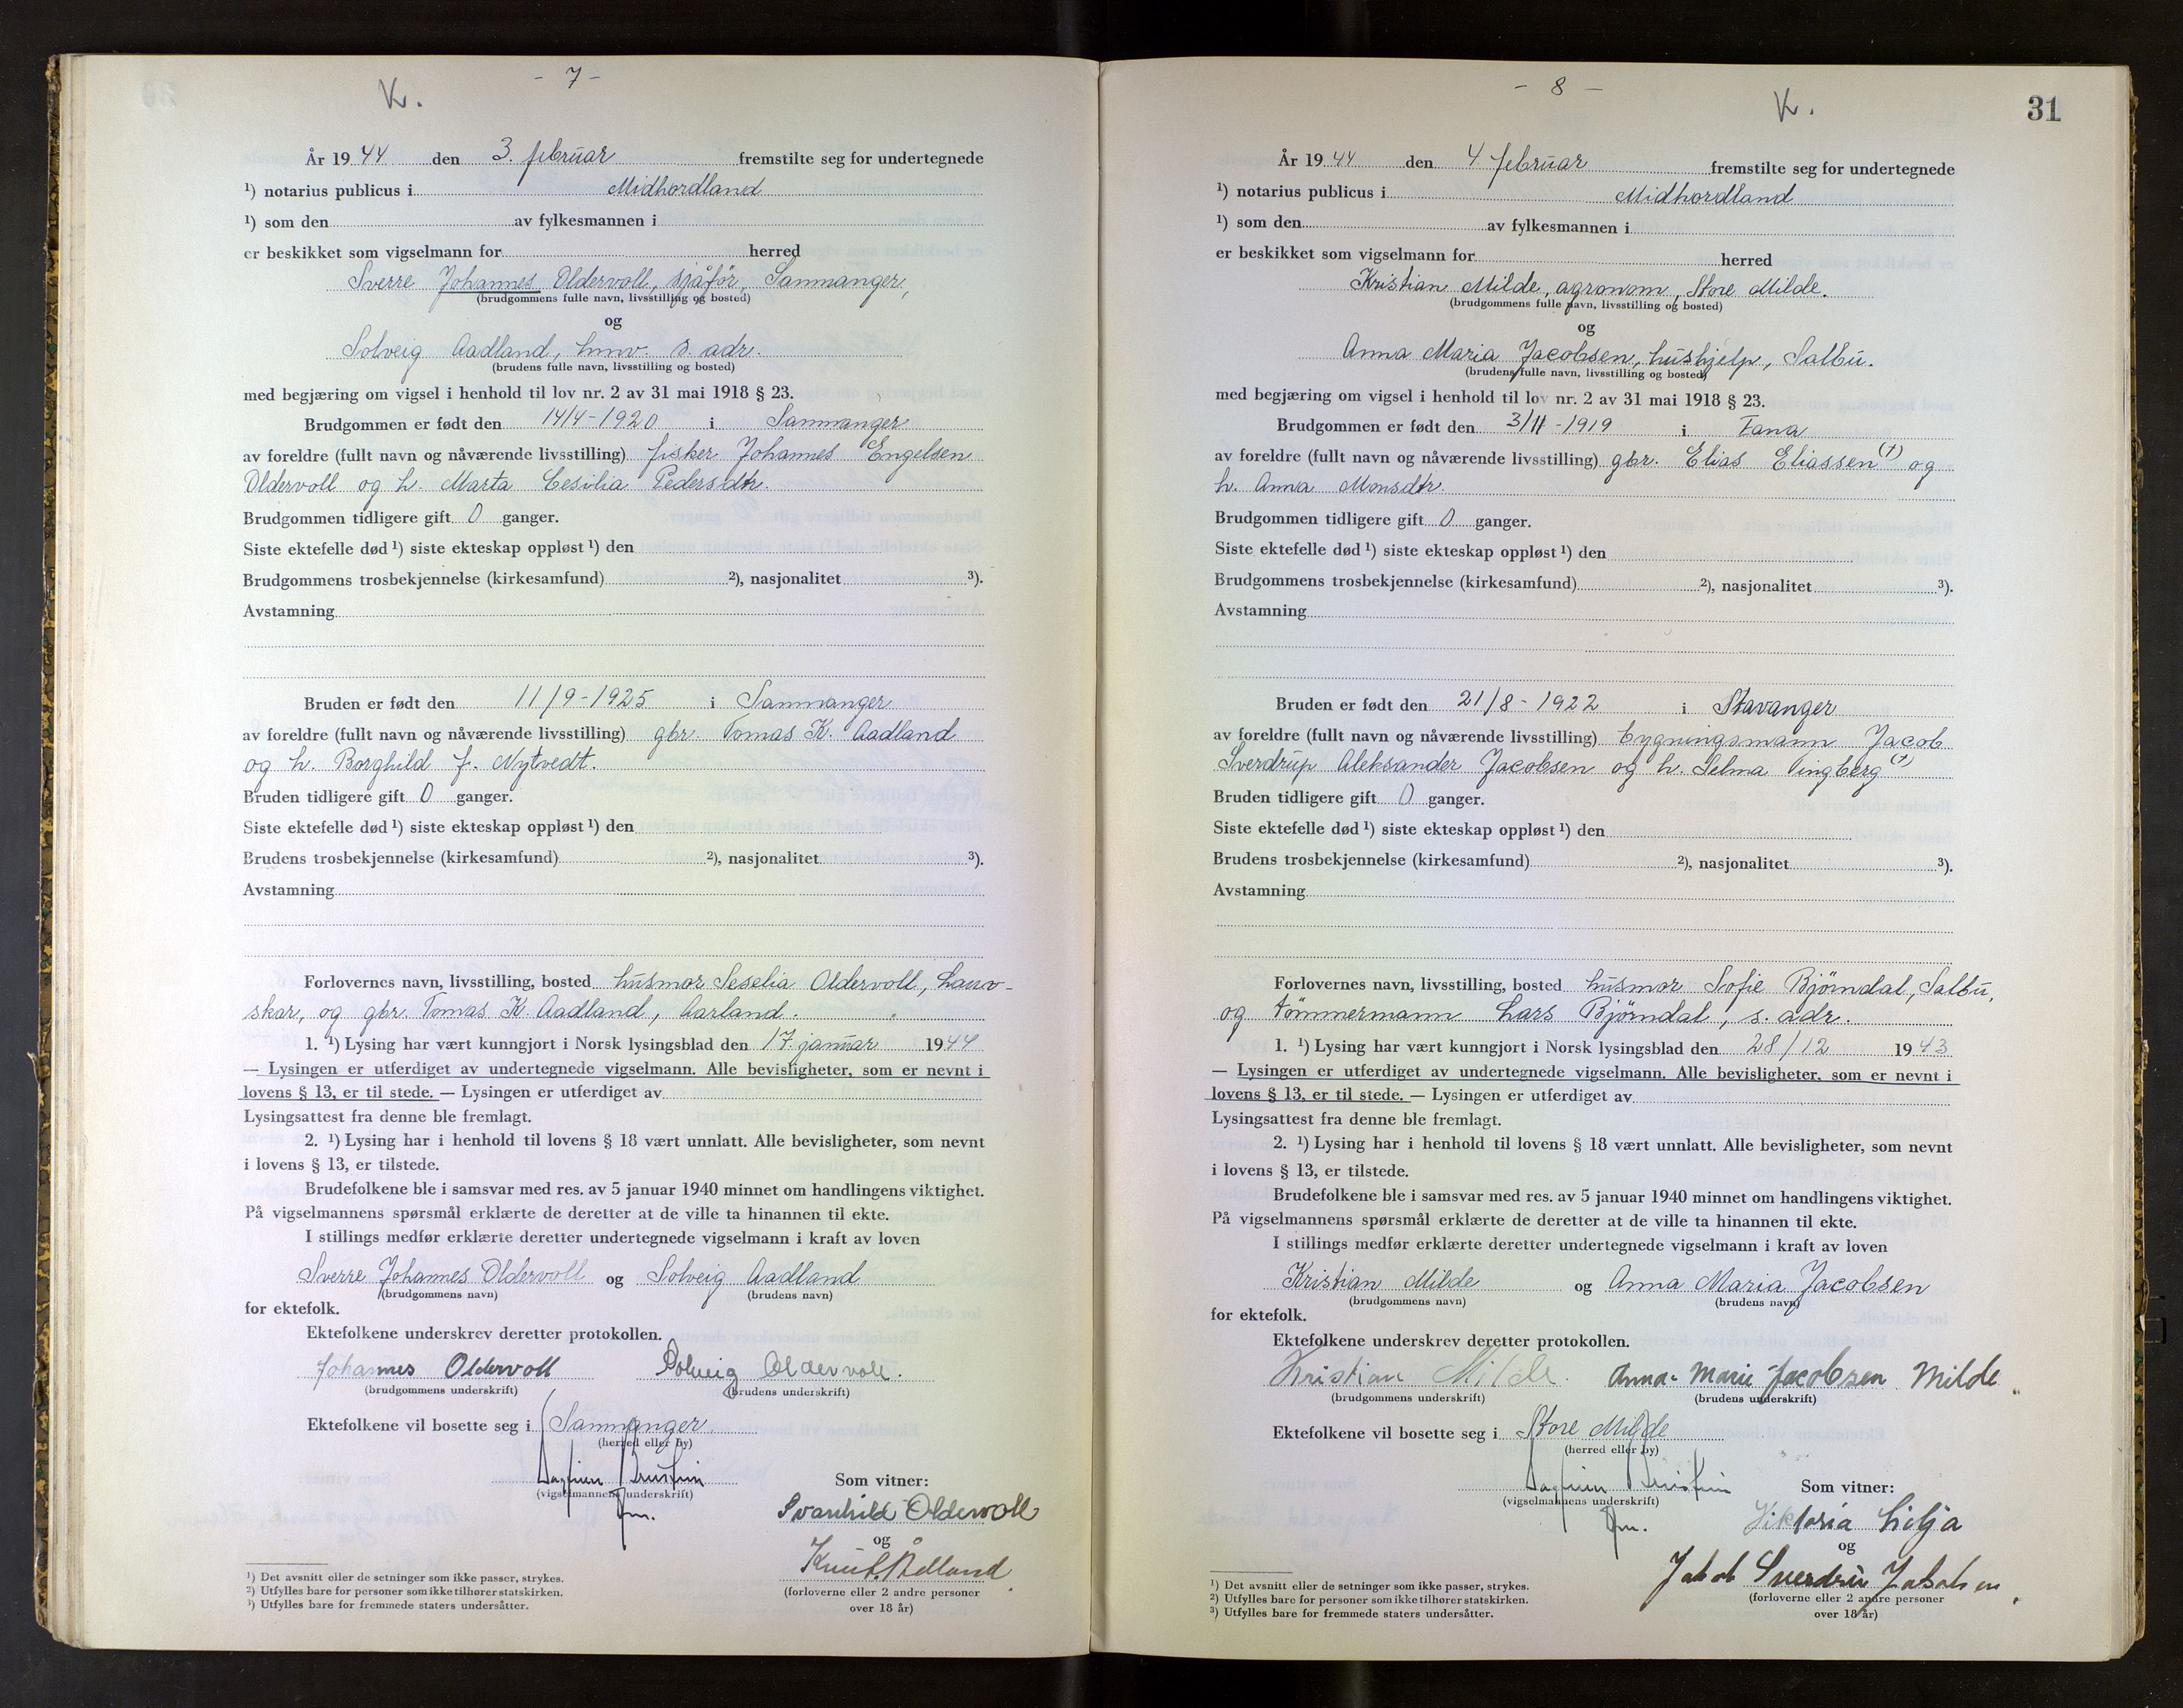 - 7 -
K.
År 1944 den 3. februar fremstilte seg for undertegnede
¹) notarius publicus i Midhordland
¹) som den av fylkesmannen i
er beskikket som vigselmann for herred
Sverre Johannes Oldervoll, sjåfør, Samnanger,
(brudgommens fulle navn, livsstilling og bosted)
og
Solveig Aadland, hmv. s. adr.
(brudens fulle navn, livsstilling og bosted)
med begjæring om vigsel i henhold til lov nr. 2 av 31 mai 1918 § 23.
Brudgommen er født den 14/4-1920 i Samnanger
av foreldre (fullt navn og nåværende livsstilling) fisker Johannes Engelsen
Oldervoll og h. Marta Cesilia Pedersdtr.
Brudgommen tidligere gift 0 ganger.
Siste ektefelle død ¹) siste ekteskap oppløst ¹) den
Brudgommens trosbekjennelse (kirkesamfund) ²), nasjonalitet ³).
Avstamning
Bruden er født den 11/9-1925 i Samnanger
av foreldre (fullt navn og nåværende livsstilling) gbr. Tomas K. Aadland
og h. Borghild f. Nytvedt.
Bruden tidligere gift 0 ganger.
Siste ektefelle død ¹) siste ekteskap oppløst ¹) den
Brudens trosbekjennelse (kirkesamfund) ²), nasjonalitet ³).
Avstamning
Forlovernes navn, livsstilling, bosted husmor Seselia Oldervoll,
skar, og gbr. Tomas K. Aadland, Aarland.
1. ¹) Lysing har vært kunngjort i Norsk lysingsblad den 17. januar 1944
— Lysingen er utferdiget av undertegnede vigselmann. Alle bevisligheter, som er nevnt i
lovens § 13, er til stede. — Lysingen er utferdiget av
Lysingsattest fra denne ble fremlagt.
2. ¹) Lysing har i henhold til lovens § 18 vært unnlatt. Alle bevisligheter, som nevnt
i lovens § 13, er tilstede.
Brudefolkene ble i samsvar med res. av 5 januar 1940 minnet om handlingens viktighet.
På vigselmannens spørsmål erklærte de deretter at de ville ta hinannen til ekte.
I stillings medfør erklærte deretter undertegnede vigselmann i kraft av loven
Sverre Johannes Oldervoll og Solveig Aadland
(brudgommens navn) (brudens navn)
for ektefolk.
Ektefolkene underskrev deretter protokollen.
Johannes Oldervoll Solveig Oldervoll.
(brudgommens underskrift) (brudens underskrift)
Ektefolkene vil bosette seg i Samnanger
(herred eller by)
(vigselmannens underskrift)
Som vitner:
Svanhild Oldervoll
og
Knut Ådland
(forloverne eller 2 andre personer
over 18 år)
¹) Det avsnitt eller de setninger som ikke passer, strykes.
²) Utfylles bare for personer som ikke tilhører statskirken.
³) Utfylles bare for fremmede staters undersåtter.
- 8 -
K.
31
År 1944 den 4. februar fremstilte seg for undertegnede
¹) notarius publicus i Midhordland
¹) som den av fylkesmannen i
er beskikket som vigselmann for herred
Kristian Milde, agronom, Store Milde.
(brudgommens fulle navn, livsstilling og bosted)
og
Anna Maria Jacobsen, hushjelp, Salbu.
(brudens fulle navn, livsstilling og bosted)
med begjæring om vigsel i henhold til lov nr. 2 av 31 mai 1918 § 23.
Brudgommen er født den 3/11-1919 i Fana
av foreldre (fullt navn og nåværende livsstilling) gbr. Elias Eliassen (†) og
h. Anna Monsdtr.
Brudgommen tidligere gift 0 ganger.
Siste ektefelle død ¹) siste ekteskap oppløst ¹) den
Brudgommens trosbekjennelse (kirkesamfund) ²), nasjonalitet ³).
Avstamning
Bruden er født den 21/8-1922 i Stavanger
av foreldre (fullt navn og nåværende livsstilling) bygningsmann Jacob
Sverdrup Aleksander Jacobsen og h. Selma Tingberg (†)
Bruden tidligere gift 0 ganger.
Siste ektefelle død ¹) siste ekteskap oppløst ¹) den
Brudens trosbekjennelse (kirkesamfund) ²), nasjonalitet ³).
Avstamning
Forlovernes navn, livsstilling, bosted husmor Sofie Bjørndal, Salbu,
og tømmermann Lars Bjørndal, s. adr.
1. ¹) Lysing har vært kunngjort i Norsk lysingsblad den 28/12 1943
— Lysingen er utferdiget av undertegnede vigselmann. Alle bevisligheter, som er nevnt i
lovens § 13, er til stede. — Lysingen er utferdiget av
Lysingsattest fra denne ble fremlagt.
2. ¹) Lysing har i henhold til lovens § 18 vært unnlatt. Alle bevisligheter, som nevnt
i lovens § 13, er tilstede.
Brudefolkene ble i samsvar med res. av 5 januar 1940 minnet om handlingens viktighet.
På vigselmannens spørsmål erklærte de deretter at de ville ta hinannen til ekte.
I stillings medfør erklærte deretter undertegnede vigselmann i kraft av loven
Kristian Milde og Anna Maria Jacobsen
(brudgommens navn) (brudens navn)
for ektefolk.
Ektefolkene underskrev deretter protokollen.
Kristian Milde. Anna-Marie Jacobsen Milde
(brudgommens underskrift) (brudens underskrift)
Ektefolkene vil bosette seg i Store Milde
(herred eller by)
(vigselmannens underskrift)
Som vitner:
Viktoria Lilja
og
Jakob Sverdrup Jakobsen
(forloverne eller 2 andre personer
over 18 år)
¹) Det avsnitt eller de setninger som ikke passer, strykes.
²) Utfylles bare for personer som ikke tilhører statskirken.
³) Utfylles bare for fremmede staters undersåtter.